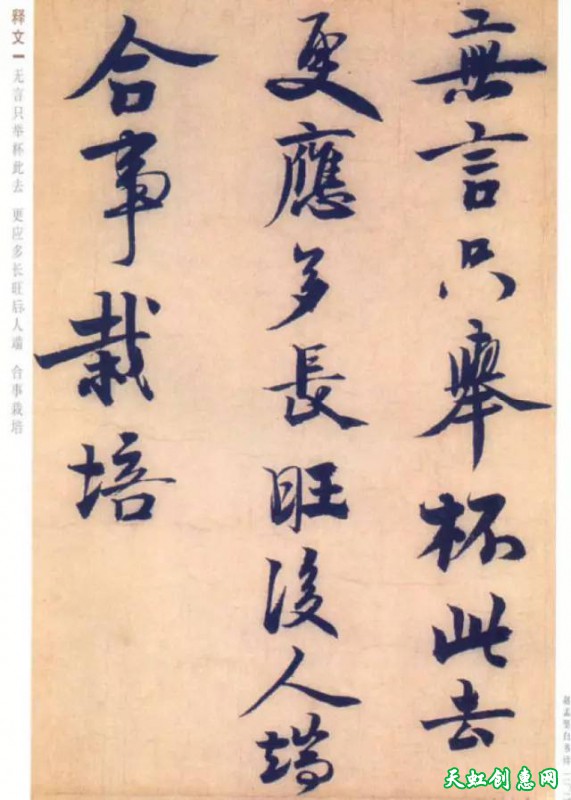 無言只舉杯此去
更應多長旺後人端
合事栽培
释文一 无言只举杯此去 更应多长旺后人端 合事栽培
天虹创惠网